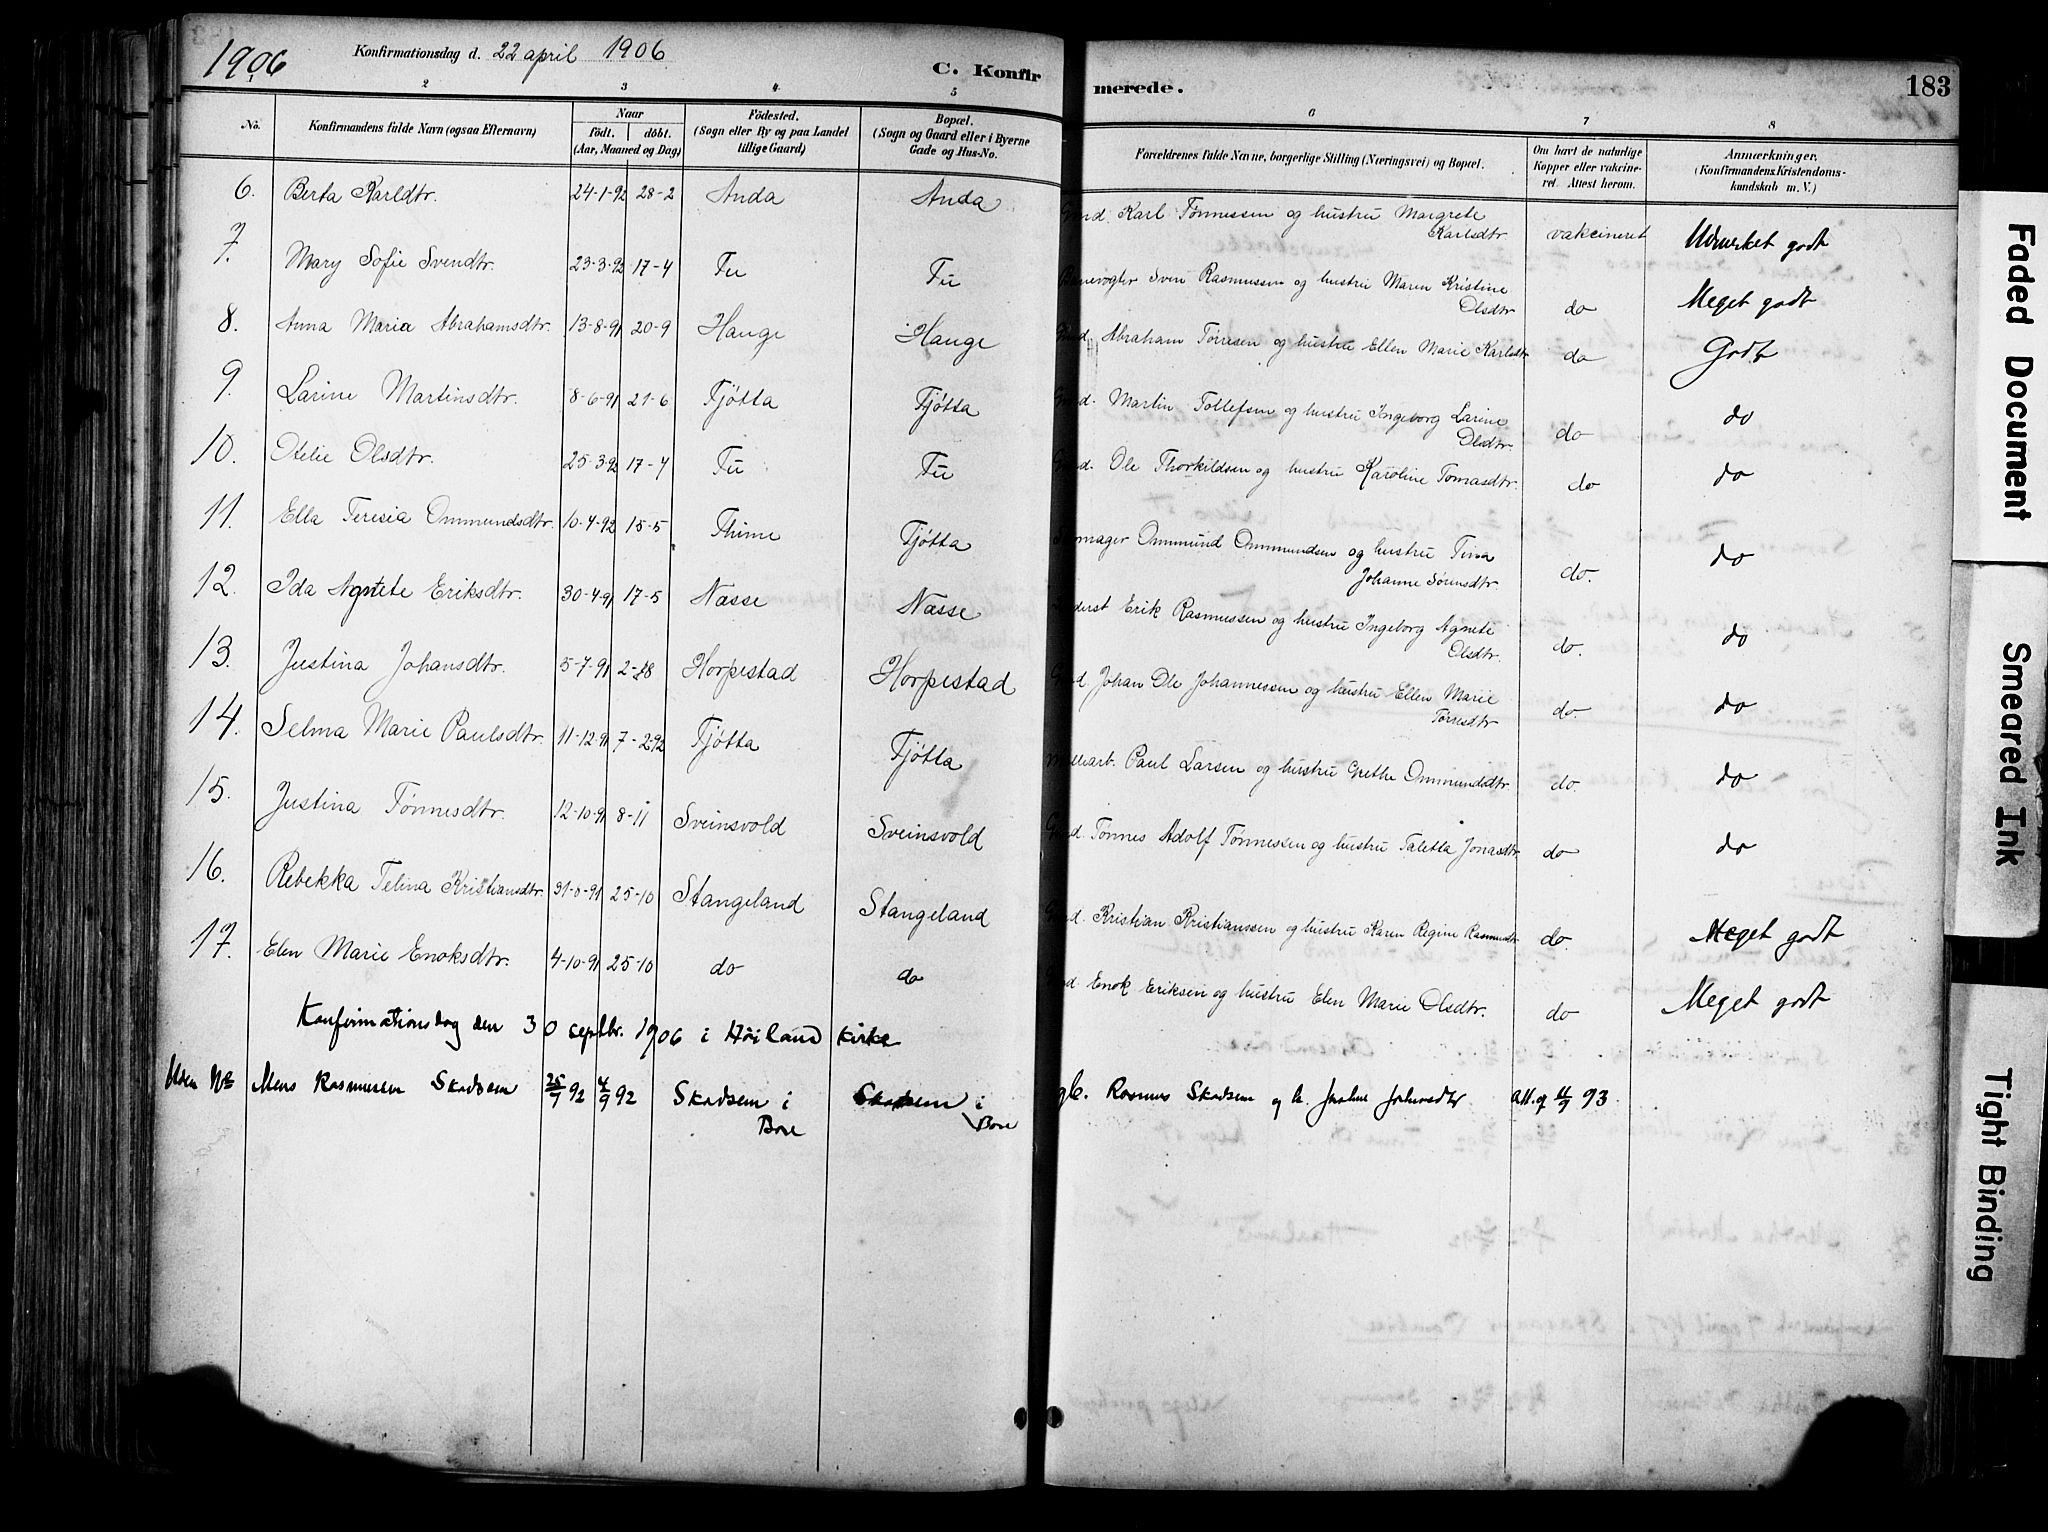 1906 Konfirmationsdag d. 22 april 1906
C. Konfir
merede. 183
1 2 3 4 5 6 7 8
No. Konfirmandens fulde Navn (ogsaa Efternavn) Naar født. døbt. (Aar, Maaned og Dag) Födested. (Sogn eller By og paa Landet tillige Gaard) Bopæl. (Sogn og Gaard eller i Byerne Gade og Hus-No. Forældrenes fulde Navne, borgerlige Stilling (Næringsvei) og Bopæl. Om havt de naturlige Kopper eller vakcineret. Attest herom. Anmærkninger. (Konfirmandens Kristendomskundskab m. V.)
6. Berta Karldtr. 24-1-92 28-2 Anda Anda Gmd Karl Tønnessen og hustru Margrete
Karlsdtr vakcineret Udmerket godt
7. Mary Sofie Svendtr. 23-3-92 17-4 Tu Tu Banevogter Sven Rasmussen og hustru Maren Kristine
Olsdtr do Meget godt
8. Anna Maria Abrahamsdtr. 13-8-91 20-9 Hauge Hauge Gmd Abraham Tørresen og hustru Ellen Marie Karlsdtr do Godt
9. Larine Martinsdtr. 8-6-91 21-6 Tjøtta Tjøtta Gmd. Martin Tollefsen og hustru Ingeborg Larine
Olsdtr. do do
10. Otelie Olsdtr. 25-3-92 17-4 Tu Tu Gmd. Ole Thorkildsen og hustru Karoline Tomasdtr. do do
11. Ella Teresia Ommundsdtr. 10-4-92 15-5 Thime Tjøtta Skomager Ommund Ommundsen og hustru Tina
Johanne Sørensdtr. do. do
12. Ida Agnete Eriksdtr. 30-4-91 17-5 Næsse Næsse Inderst Erik Rasmussen og hustru Ingeborg Agnete
Olsdtr. do. do
13. Justina Johansdtr. 5-7-91 2-8 Horpestad Horpestad Gmd. Johan Ole Johannessen og hustru Ellen Marie
Tørresdtr do. do
14. Selma Marie Paulsdtr. 11-12-91 7-2-92 Tjøtta Tjøtta Paul Larsen og hustru Grethe Ommundsdtr. do. do
15. Justina Tønnesdtr. 12-10-91 8-11 Sveinsvold Sveinsvold Gmd. Tønnes Adolf Tønnessen og hustru Taletta Jonasdtr. do do
16. Rebekka Telina Kristiansdtr. 25-10 Stangeland Stangeland Gmd. Kristian Kristianssen og hustru Karen Regine Rasmusdtr do. Meget godt
17. Elen Marie Enoksdtr. 4-10-91 25-10 do do Gmd Enok Eriksen og hustru Elen Marie Olsdtr. do Meget godt
Konfirmationsdag den 30 septbr. 1906 i Høiland kirke
Uden No Mons Rasmussen Skadsem 25/7 92 4/9 92 Skadsem i
Bore Skadsem i
Bore gb. Rasmus Skadsem og h. Johansdtr Att. af 11/9 93
Faded Document
Smeared Ink
Tight Binding